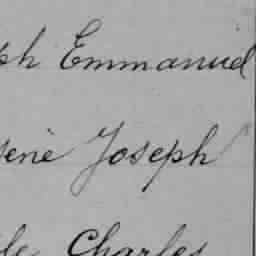 ph Emmanuel
gène Joseph
le Charles